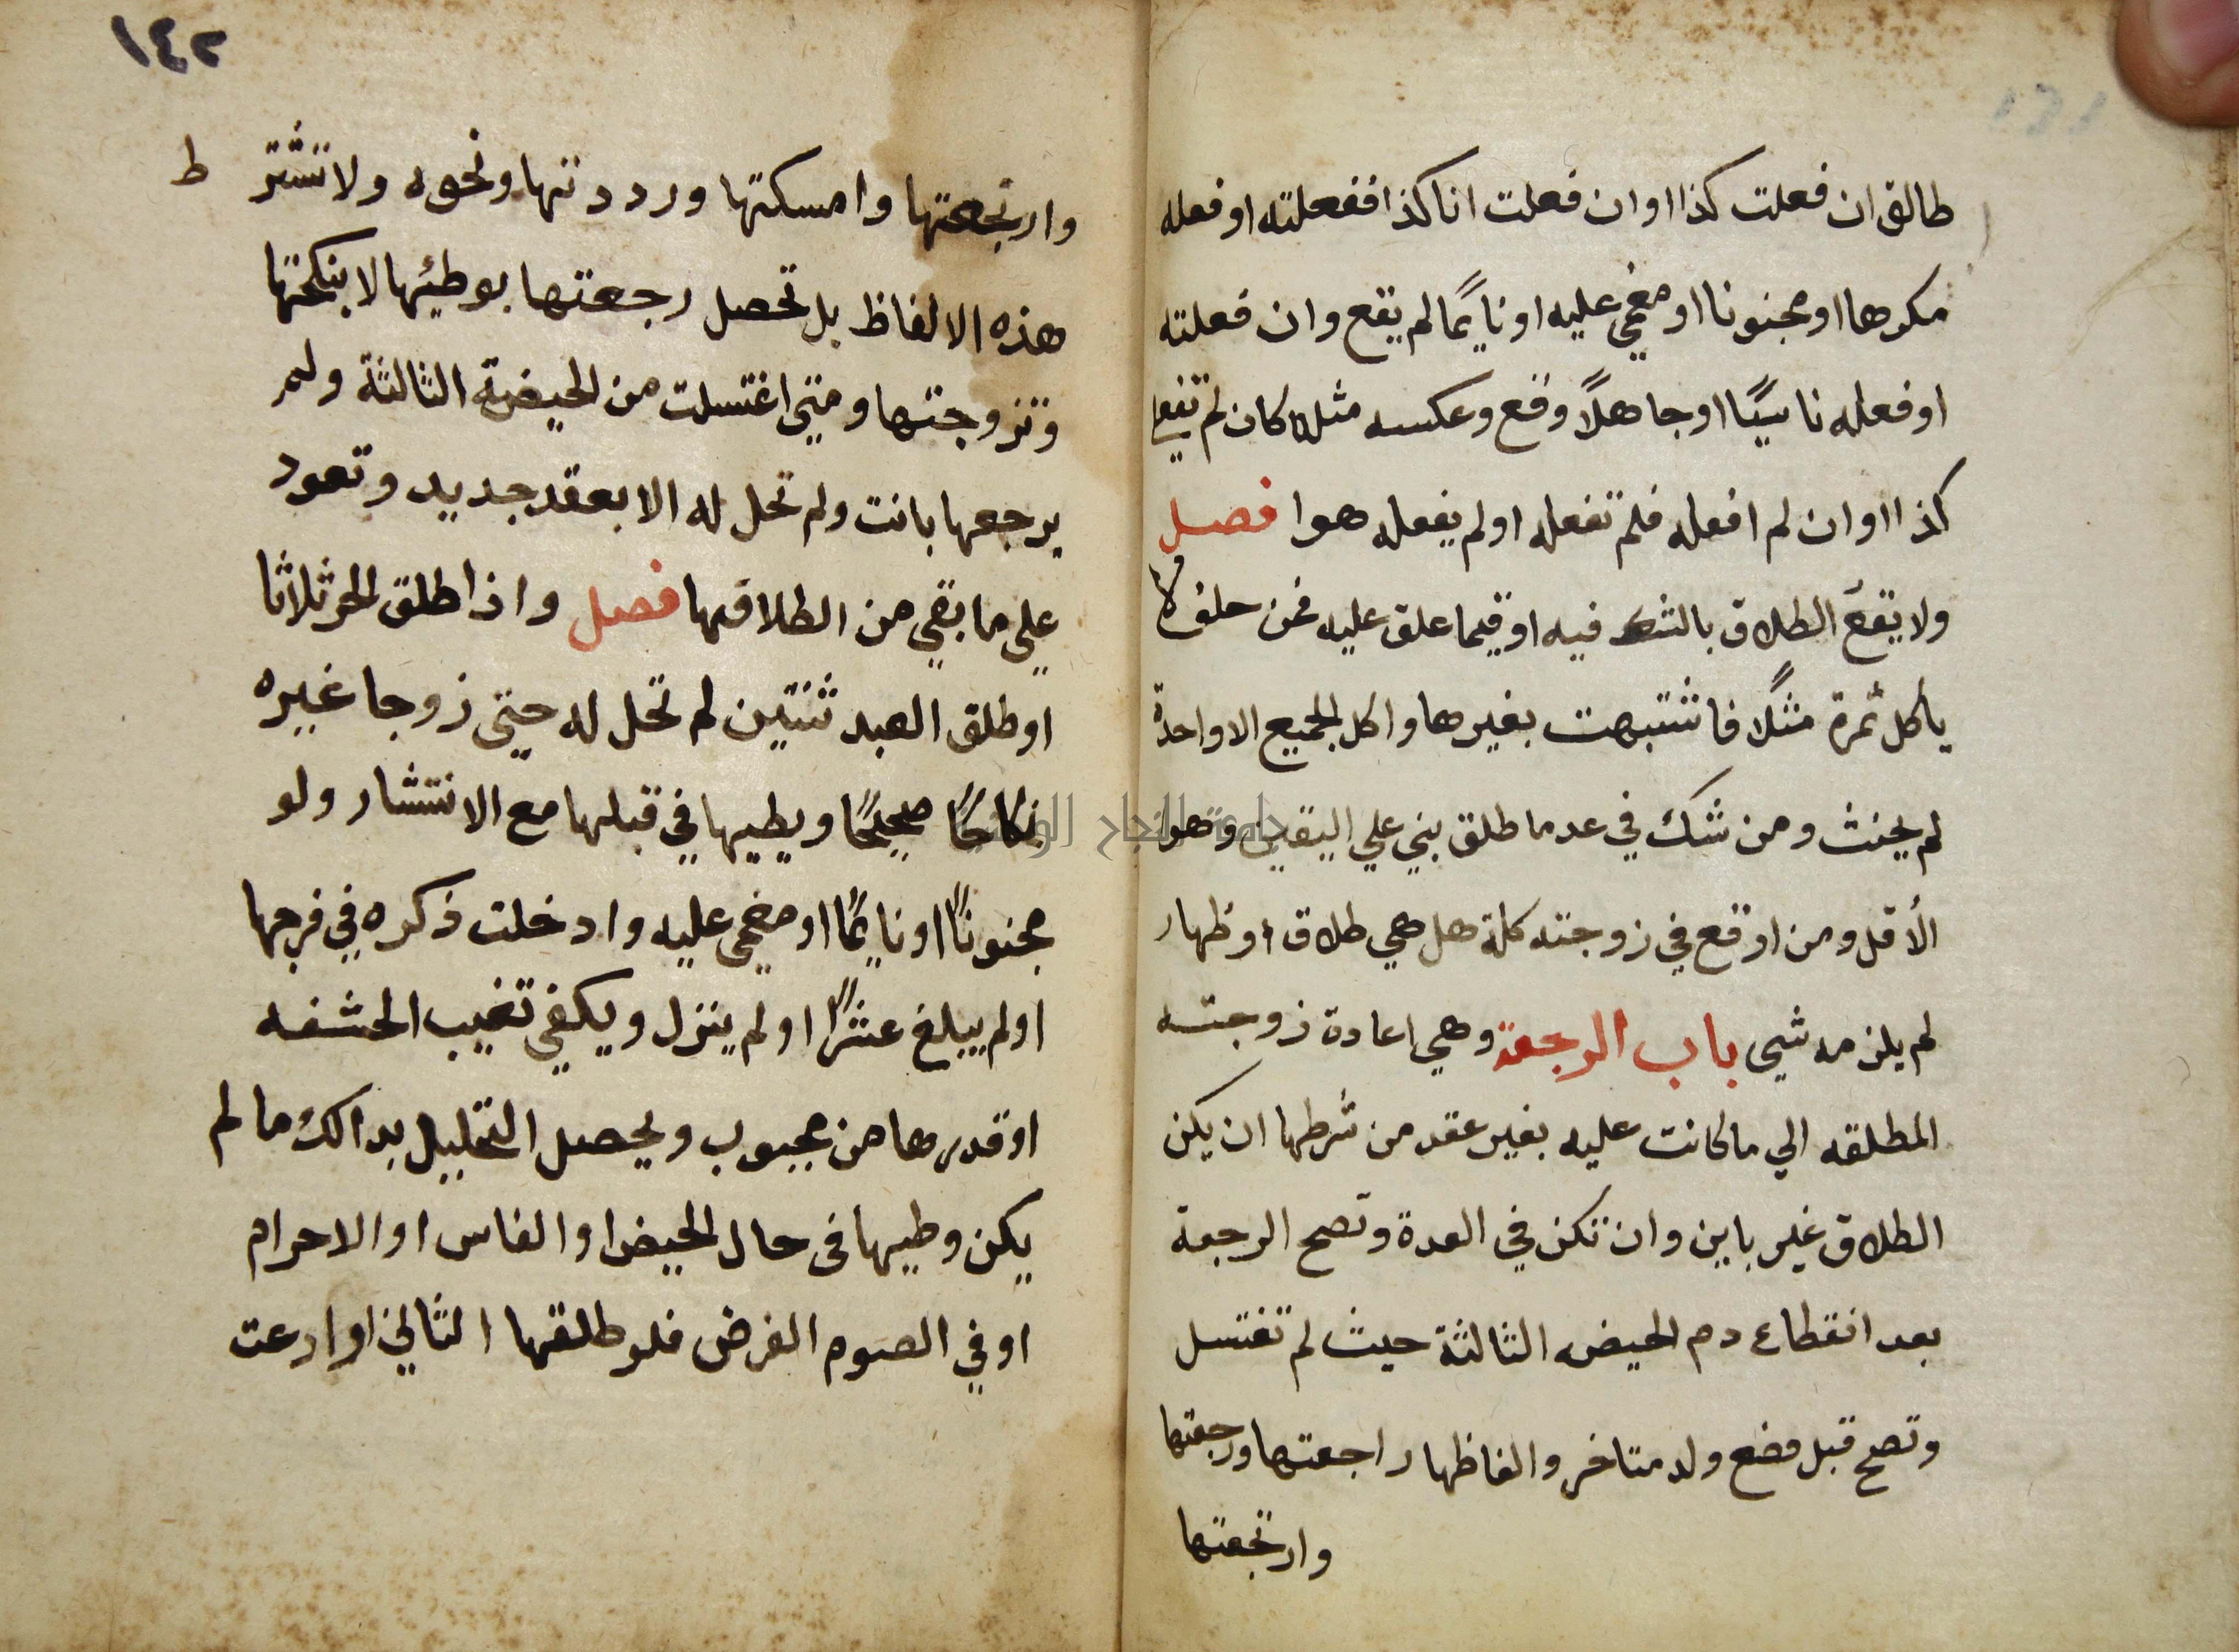 طالق ان فعلت كذا او ان فعلت انا كذا ففعلته او فعله
مكرها او مجنونا او مغمي عليه او نايمًا لم يقع وان فعلته
او فعله ناسيًا او جاهلًا وقع وعكسه مثله كان لم تفعلي
كذا او ان لم افعله فلم تفعله او لم يفعله هوا فصل
ولا يقع الطلاق بالشك فيه او فيما علق عليه فمن حلف لا
يأكل ثمرة مثلًا فاشتبهت بغيرها واكل الجميع الا واحدة
لم يحنث ومن شك في عدد ما طلق بني علي اليقين وهو
الأقل ومن اوقع في زوجته كلمة هل هي طلاق او ظهار
لم يلزمه شي باب الرجعة وهي اعادة زوجته
المطلقه الي ما كانت عليه بغير عقد من شرطها ان يكن
الطلاق غير باين وان تكن في العدة وتصح الرجعة
بعد انقطاع دم الحيضه الثالثة حيث لم تغتسل
وتصح قبل وضع ولد متاخر والفاظها راجعتها ورجعتها
وارتجعتها
١٤٢
وارتجعتها وامسكتها ورددتها ونحوه ولا تشتر ط
هذه الالفاظ بل تحصل رجعتها بوطئها لا بنكحتها
وتزوجتها ومتي اغتسلت من الحيضة الثالثة ولم
يرجعها بانت ولم تحل له الا بعقد جديد وتعود
علي ما بقي من الطلاقها فصل واذا طلق الحر ثلاثا
او طلق العبد ثنتين لم تحل له حتي زوجا غيره
نكاحًا صحيحًا ويطيها في قبلها مع الانتشار ولو
مجنونًا او نايمًا او مغمي عليه وادخلت ذكره في فرجها
او لم يبلغ عشرًا او لم ينزل ويكفي تغيب الحشفه
او قدرها من مجبوب ويحصل التحليل بدالك ما لم
يكن وطيها فى حال الحيض او الفاس او الاحرام
او في الصوم الفرض فلو طلقها الثاني او ادعت